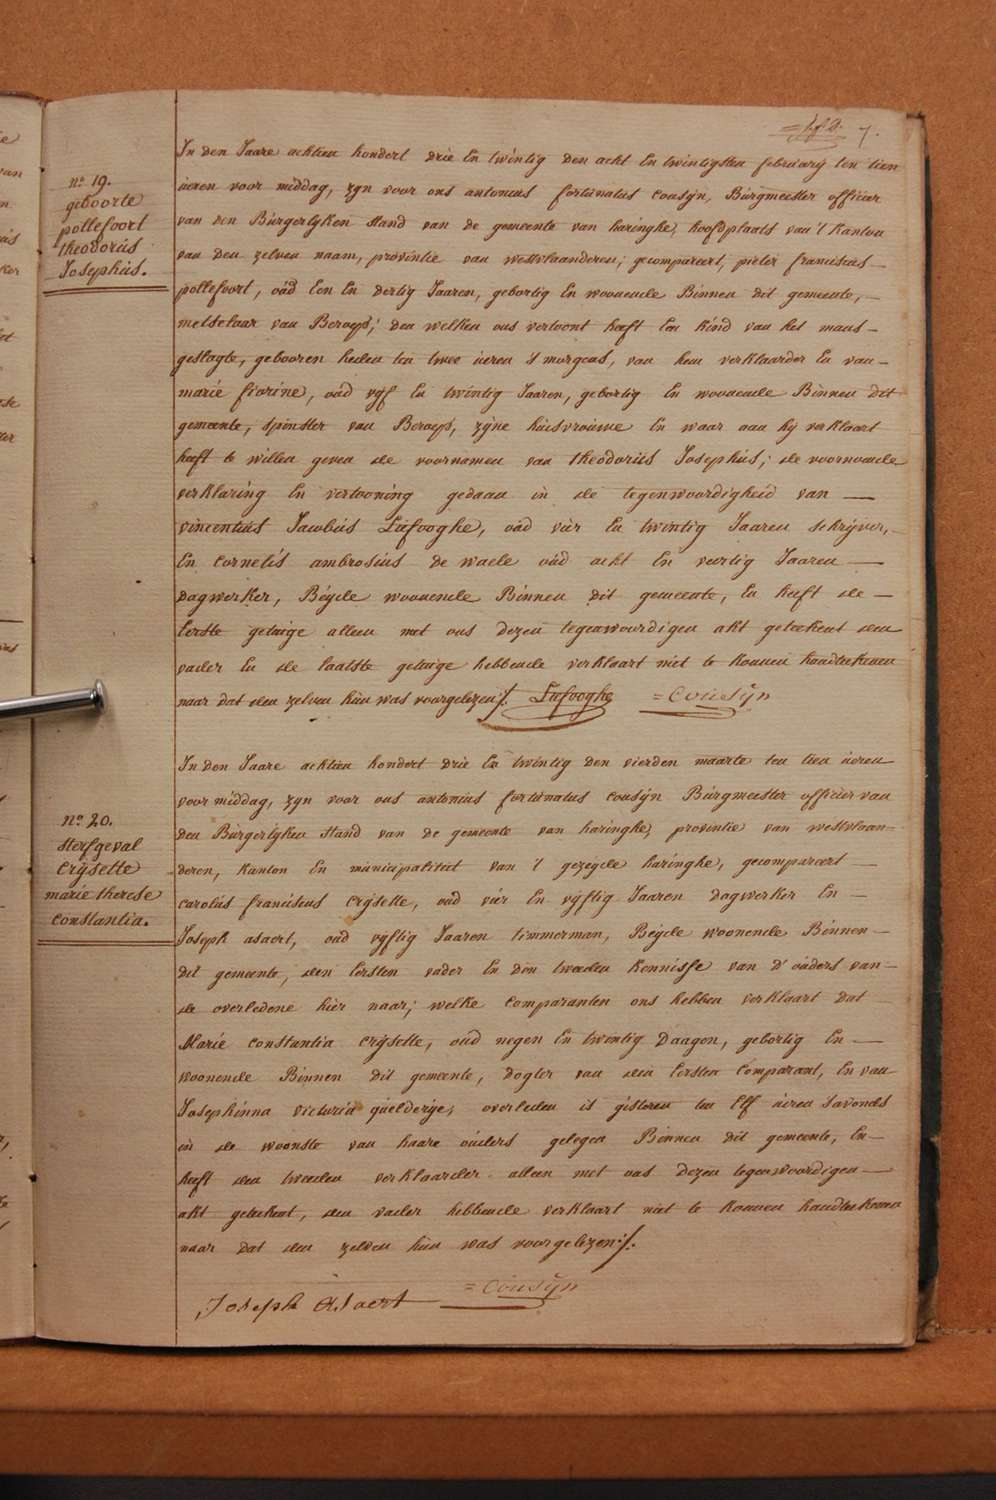 7.
n.o 19.
geboorte
pottefoort
theodorùs
Josephùs.
In den Jaare achtien hondert drie En twintig den acht En twintigsten februarij ten tien
ùeren voor middag, zyn voor ons antonius fortùnatus coùsijn, Bùrgmeester officier
van den Bùrgerlyken stand van de gemeente van haringhe, hoofdplaats van 't Kanton
van den zelven naam, provintie van westvlaanderen; gecompareert, pieter franciscus
pottefoort, oùd Een En dertig Jaaren, gebortig En woonende Binnen dit gemeente,
metselaar van Beroep; den welken ons vertoont heeft Een kind van het mans-
geslagte, gebooren heden ten twee ùeren 's morgens, van hem verklaarder En van
marie fiorine, oùd vijf En twintig Jaaren, gebortig En woonende Binnen dit
gemeente, spinster van Beroep, zijne hùisvroùwe En waar aan hij verklaart
heeft te willen geven de voornamen van theodorùs Josephùs; de voornoemde
verklaring En vertooning gedaan in de tegenwoordigheid van
vincentius Jacobùs Lefooghe, oùd vier En twintig Jaaren schrijver,
En cornelis ambrosius de waele oùd acht En veertig Jaaren
dagwerker, Béyde woonende Binnen dit gemeente, En heeft de
Eerste getuige alleen met ons dezen tegenwoordigen akt geteekent den
vader En de laatste getuige hebbende verklaart niet te konnen handteekenen
naar dat den zelven hùn was voorgelezen ./. Lefooghe = Coùsÿn
n.o 20.
sterfgeval
Crÿsette
marie therese
constantia.
In den Jaare achtien hondert drie En twintig den vierden maarte ten tien ùeren
voormiddag, zyn voor ons antonius fortùnatus coùsÿn Bùrgmeester officier van
den Bùrgerlyken stand van de gemeente van haringhe, provintie van westvlaan-
deren, Kanton En mùnicipaliteit van 't gezeyde haringhe, gecompareert
carolùs franciscus crÿsette, oùd vier En vyftig Jaaren dagwerker En
Joseph asaert, oùd vyftig Jaaren timmerman, Béyde woonende Binnen
dit gemeente, den Eersten vader En den tweeden Kennisse van d'oùders van
de overledene hier naar; welke comparanten ons hebben verklaart dat
Marie constantia crÿsette, oùd negen En twintig Daagen, gebortig En
woonende Binnen dit gemeente, dogter van den Eersten Comparant, En van
Josephinna victoria gùelderije, overleden is gisteren ten Elf ùeren s'avonds
in de woonste van haare oùders gelegen Binnen dit gemeente, En
heeft den tweeden verklaarder alleen met ons dezen tegenwoordigen
akt geteekent, den vader hebbende verklaart niet te konnen handteekenen
naar dat den zelven hùn was voorgelezen ./.
Joseph Asaert = Coùsÿn